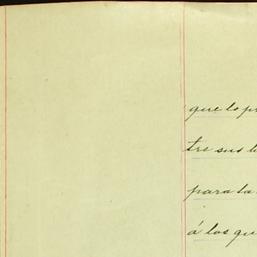 que lo
tre sus
para la
á los